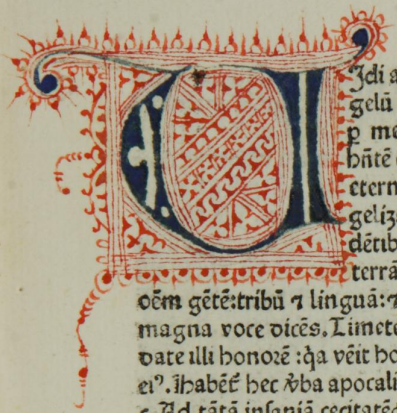 VIdi a
gelū
p me
hñtē
etern
geliz
dētib
terrā
oēm gētē: tribū ⁊ linguā: ⁊
magna voce dicēs. Timete
date illi honorē: q̇a vēit ho
eiꝰ. Ihabēt hec v̓ba apocali
Ad tātā insaniā cecitatē